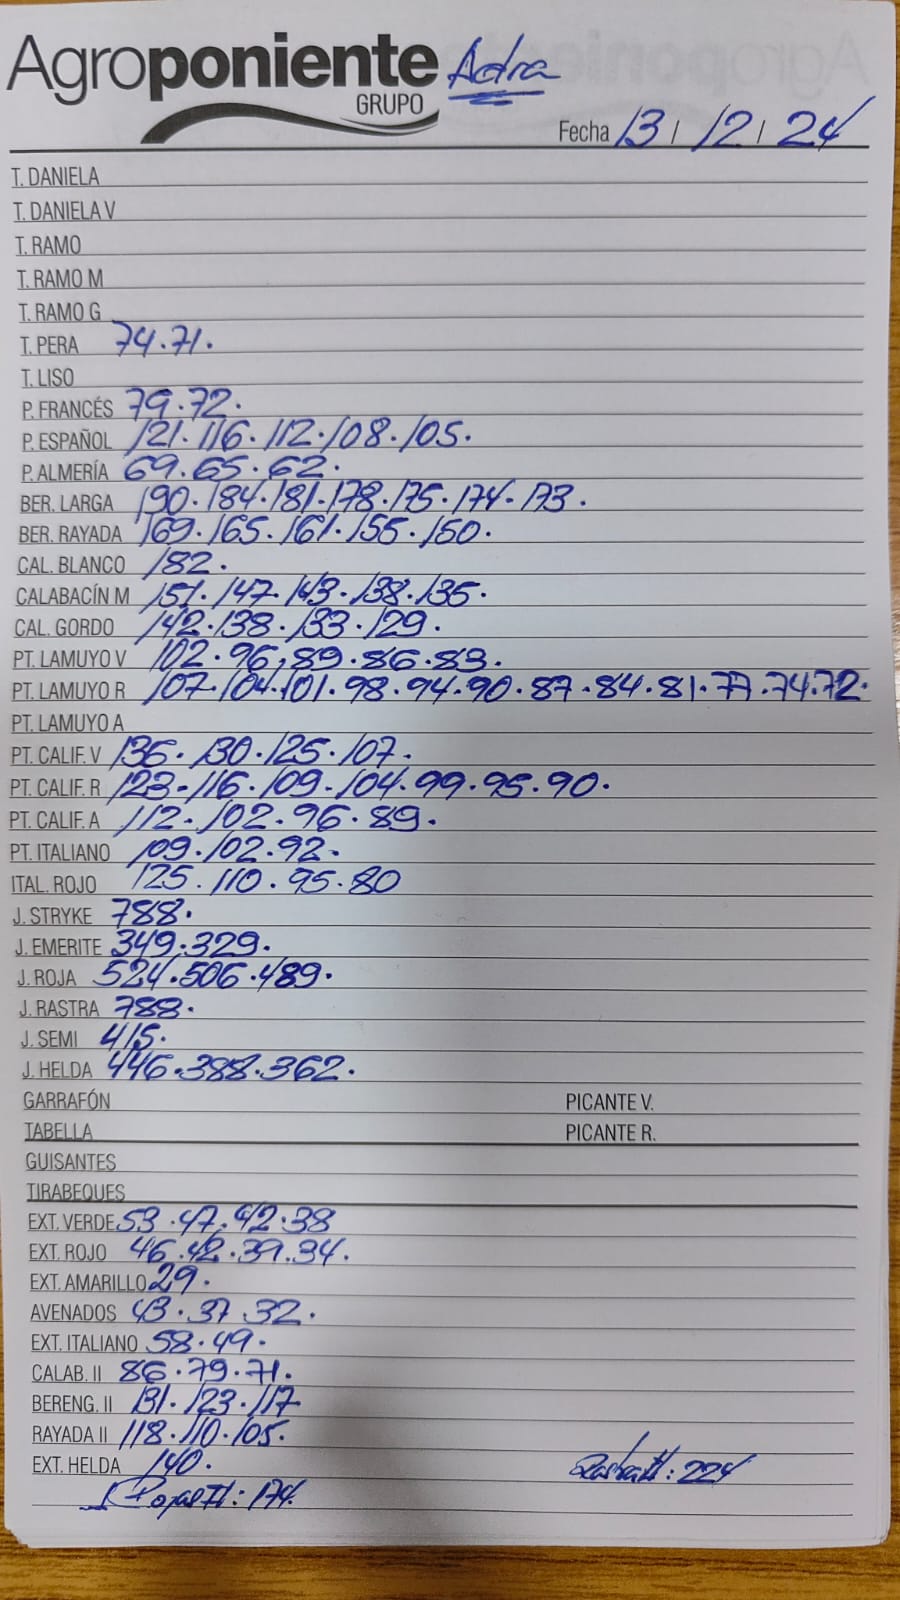 Agroponiente Adra
GRUPO
Fecha 13 / 12 / 24
T. DANIELA
T. DANIELA V
T. RAMO
T. RAMO M
T. RAMO G
T. PERA 74.71.
T. LISO
P. FRANCÉS 79.72.
P. ESPAÑOL 121.116.112.108.105.
P. ALMERÍA 69.65.62.
BER. LARGA 190.184.181.178.175.174.173.
BER. RAYADA 169.165.161.155.150.
CAL. BLANCO 182.
CALABACÍN M 151.147.143.138.135.
CAL. GORDO 142.138.133.129.
PT. LAMUYO V 102.96.89.86.83.
PT. LAMUYO R 107.104.101.98.94.90.87.84.81.77.74.72.
PT. LAMUYO A
PT. CALIF. V 136.130.125.107.
PT. CALIF. R 123-116.109.104.99.95.90.
PT. CALIF. A 112.102.96.89.
PT. ITALIANO 109.102.92.
ITAL. ROJO 125.110.95.80
J. STRYKE 788.
J. EMERITE 349.329.
J. ROJA 524.506.489.
J. RASTRA 788.
J. SEMI 415.
J. HELDA 446.388.362.
GARRAFÓN PICANTE V.
TABELLA PICANTE R.
GUISANTES
TIRABEQUES
EXT. VERDE 53.47.42.38
EXT. ROJO 46.42.39.34.
EXT. AMARILLO 29.
AVENADOS 43.37.32.
EXT. ITALIANO 58.49.
CALAB. II 86.79.71.
BERENG. II 131.123.117
RAYADA II 118.110.105.
EXT. HELDA 140. Rastra II: 224
J Roja II: 174.